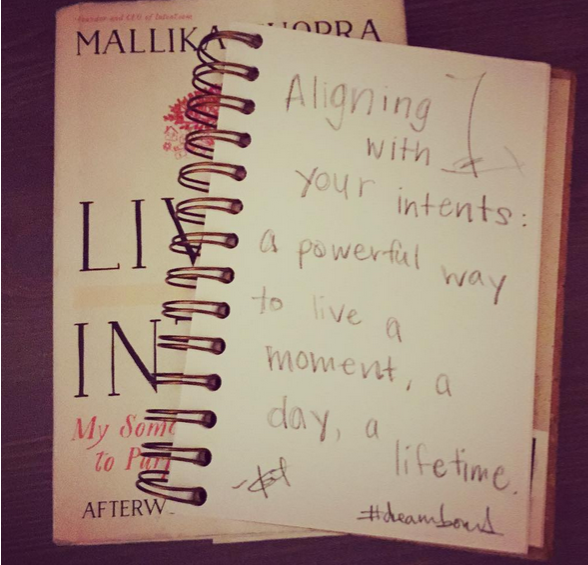 Founder and CEO of Intent.com
MALLIKA CHOPRA
LIV
IN
My Som
to Pa
AFTERW
Aligning
with
your intents:
a powerful way
to live a
moment, a
day, a
lifetime.
#dreambound